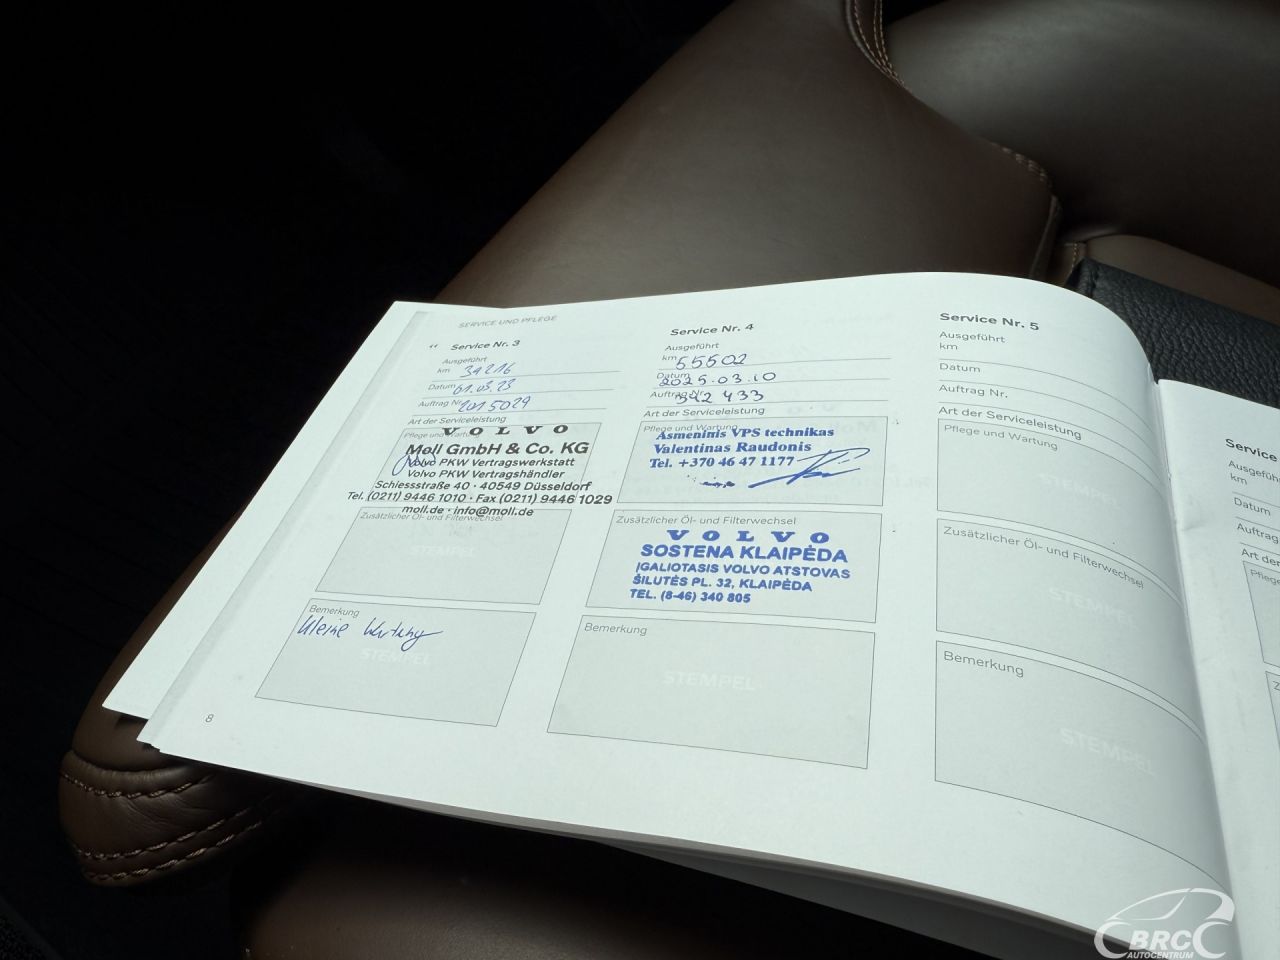 SERVICE UND PFLEGE
Service Nr. 3
Ausgeführt
km 34216
Datum 01.03.23
Auftrag Nr. 2015029
Art der Serviceleistung
Pflege und Wartung
VOLVO
Moll GmbH & Co. KG
Volvo PKW Vertragswerkstatt
Volvo PKW Vertragshändler
Schiessstraße 40 · 40549 Düsseldorf
Tel. (0211) 9446 1010 · Fax (0211) 9446 1029
moll.de · info@moll.de
Zusätzlicher Öl- und Filterwechsel
STEMPEL
Bemerkung
Kleine Wartung
STEMPEL
8
Service Nr. 4
Ausgeführt
km 55502
Datum 2025.03.10
Auftrag Nr. 342433
Art der Serviceleistung
Pflege und Wartung
Asmeninis VPS technikas
Valentinas Raudonis
Tel. +370 46 47 1177
Zusätzlicher Öl- und Filterwechsel
VOLVO
SOSTENA KLAIPĖDA
ĮGALIOTASIS VOLVO ATSTOVAS
ŠILUTĖS PL. 32, KLAIPĖDA
TEL. (8-46) 340 805
Bemerkung
STEMPEL
Service Nr. 5
Ausgeführt
km
Datum
Auftrag Nr.
Art der Serviceleistung
Pflege und Wartung
STEMPEL
Zusätzlicher Öl- und Filterwechsel
STEMPEL
Bemerkung
STEMPEL
Service
km
Datum
Auftrag
Art der
BRC
AUTOCENTRUM